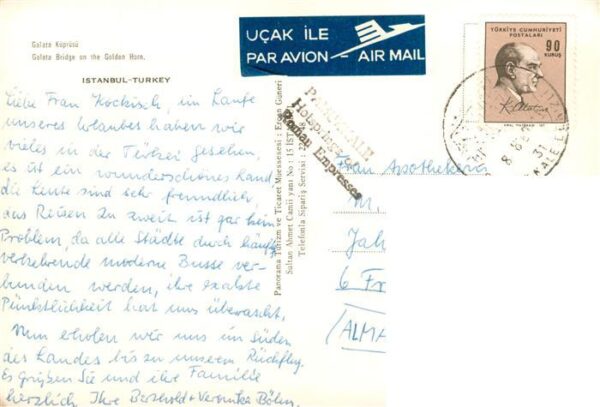 Galata Köprüsü
Galata Bridge on the Golden Horn.
ISTANBUL-TURKEY
UÇAK İLE
PAR AVION - AIR MAIL
TÜRKİYE CUMHURİYETİ
POSTALARI
90
KURUŞ
PAMUKKALE
Hotsprings of
Roman Empresses
Panorama Turizm ve Ticaret Müessesesi : Ercan Güneri
Sultan Ahmet Camii yanı No : 15 IST
Telefonla Sipariş Servisi : 
Liebe Frau Kockisch, im Laufe
unseres Urlaubes haben wir
vieles in der Türkei gesehen,
es ist ein wunderschönes Land
die Leute sind sehr freundlich,
das Reisen zu zweit ist gar kein
Problem, da alle Städte durch häufig
verkehrende moderne Busse ver-
bunden werden, ihre exakte
Pünktlichkeit hat uns überrascht.
Nun erholen wir uns im Süden
des Landes bis zu unserem Rückflug.
Es grüßen Sie und ihre Familie
herzlich Ihre Berthold + Veronika Böhm.
Frau Apothekerin
Jah
6 Fr
(ALMA